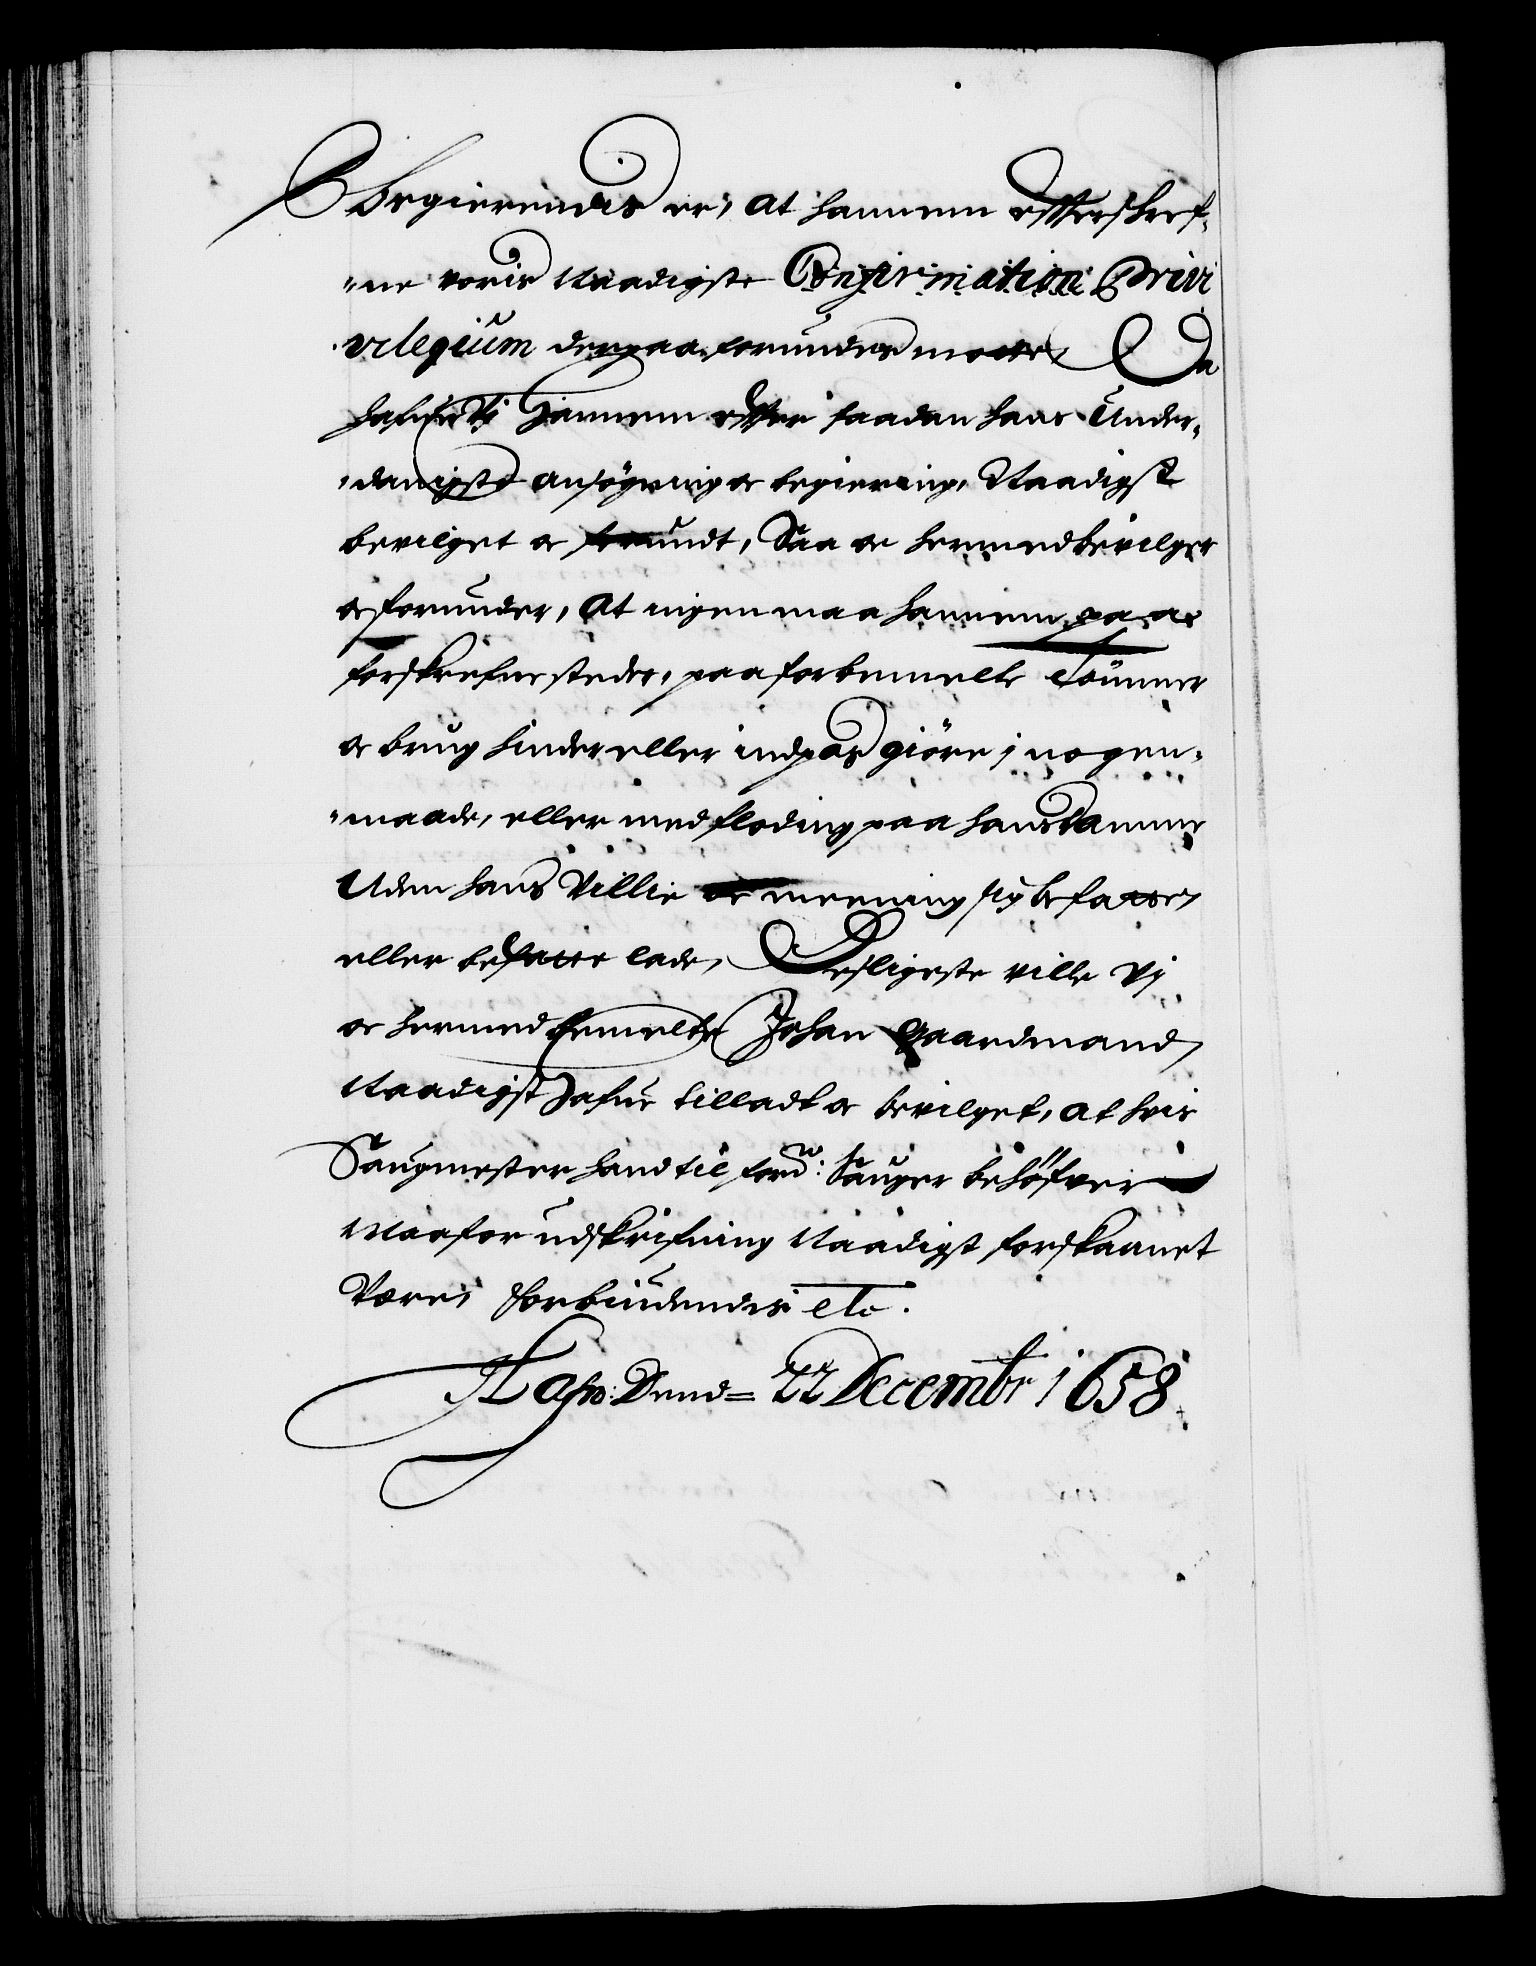 Begierendis er, at hannem effterschref-
-ne voris Naadigste Confirmation Privi
vilegium derpaa forundes motte, Da
hafue Vi hannem effter saadan hans Under-
-danigste ansøgning oc begiering, Naadigst
bevilget oc forundt, Saa oc hermed bevilger
oc forunder, At ingen maa hannem paa
forskrefne steder, paa forbemelte
oc brug hinder eller indpas giøre i nogen-
-maade, eller med floding paa hans damme
Uden hans Villie oc meening sig befatte,
eller befatte lade, Desligeste ville Vj
oc hermed bemelte Johan Gaardmand,
Naadigst hafue tilladt oc bevilget, at hvis
Saugmester hand til ford: Sauger behøfver
Maa for udskrifning Naadigst forskaanet
Være, Forbiudendis etc.
Hafn: Dend = 22 Decembr 1658